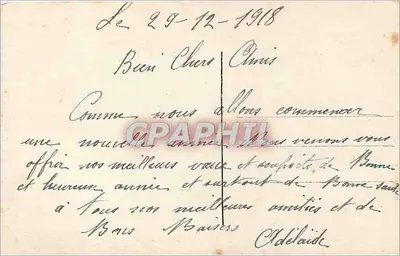 Le 29-12-1918
Bien Chers Amis
Comme nous allons commencer
une nouvelle année Nous venons vous
offrir nos meilleurs vœux et souhaits de Bonne
et heureuse année et surtout de Bonne santé
à tous nos meilleures amitiés et de
Bons Baisers
Adélaïde
CPAPHIL